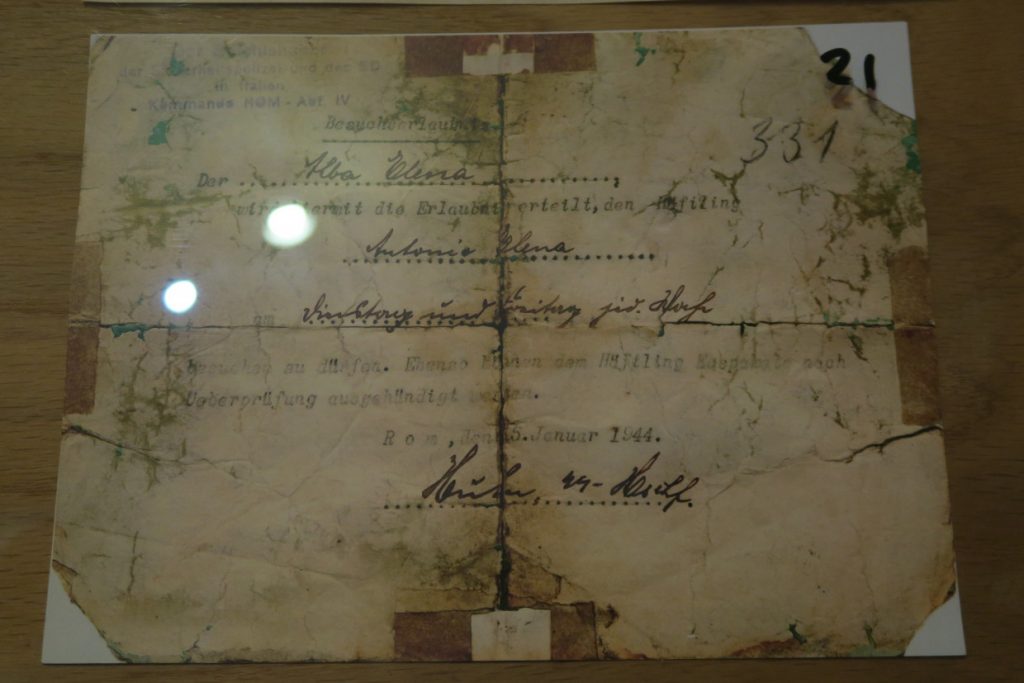 21
der Sicherheitspolizei und des SD
in Italien
Kommando ROM - Abt. IV
Besuchserlaubnis
331
Der Alba Elena,
wird hiermit die Erlaubnis erteilt, den Häftling
Antonio Elena
am Dinstag und Freitag jed. Woche
besuchen zu dürfen. Ebenso können dem Häftling nach
Ueberprüfung ausgehändigt werden.
Rom, den 5. Januar 1944.